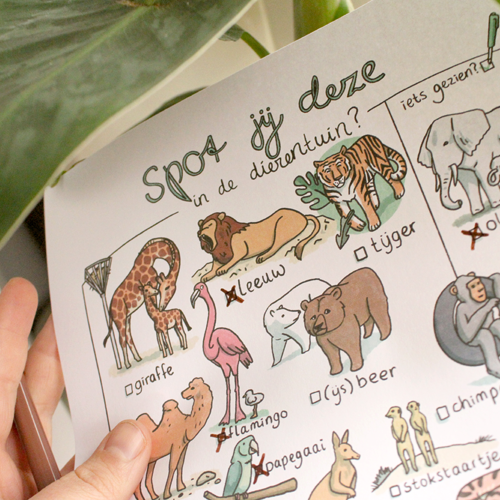 Spot jij deze
in de dierentuin?
iets gezien?
leeuw
tijger
giraffe
(ijs)beer
flamingo
papegaai
stokstaartje